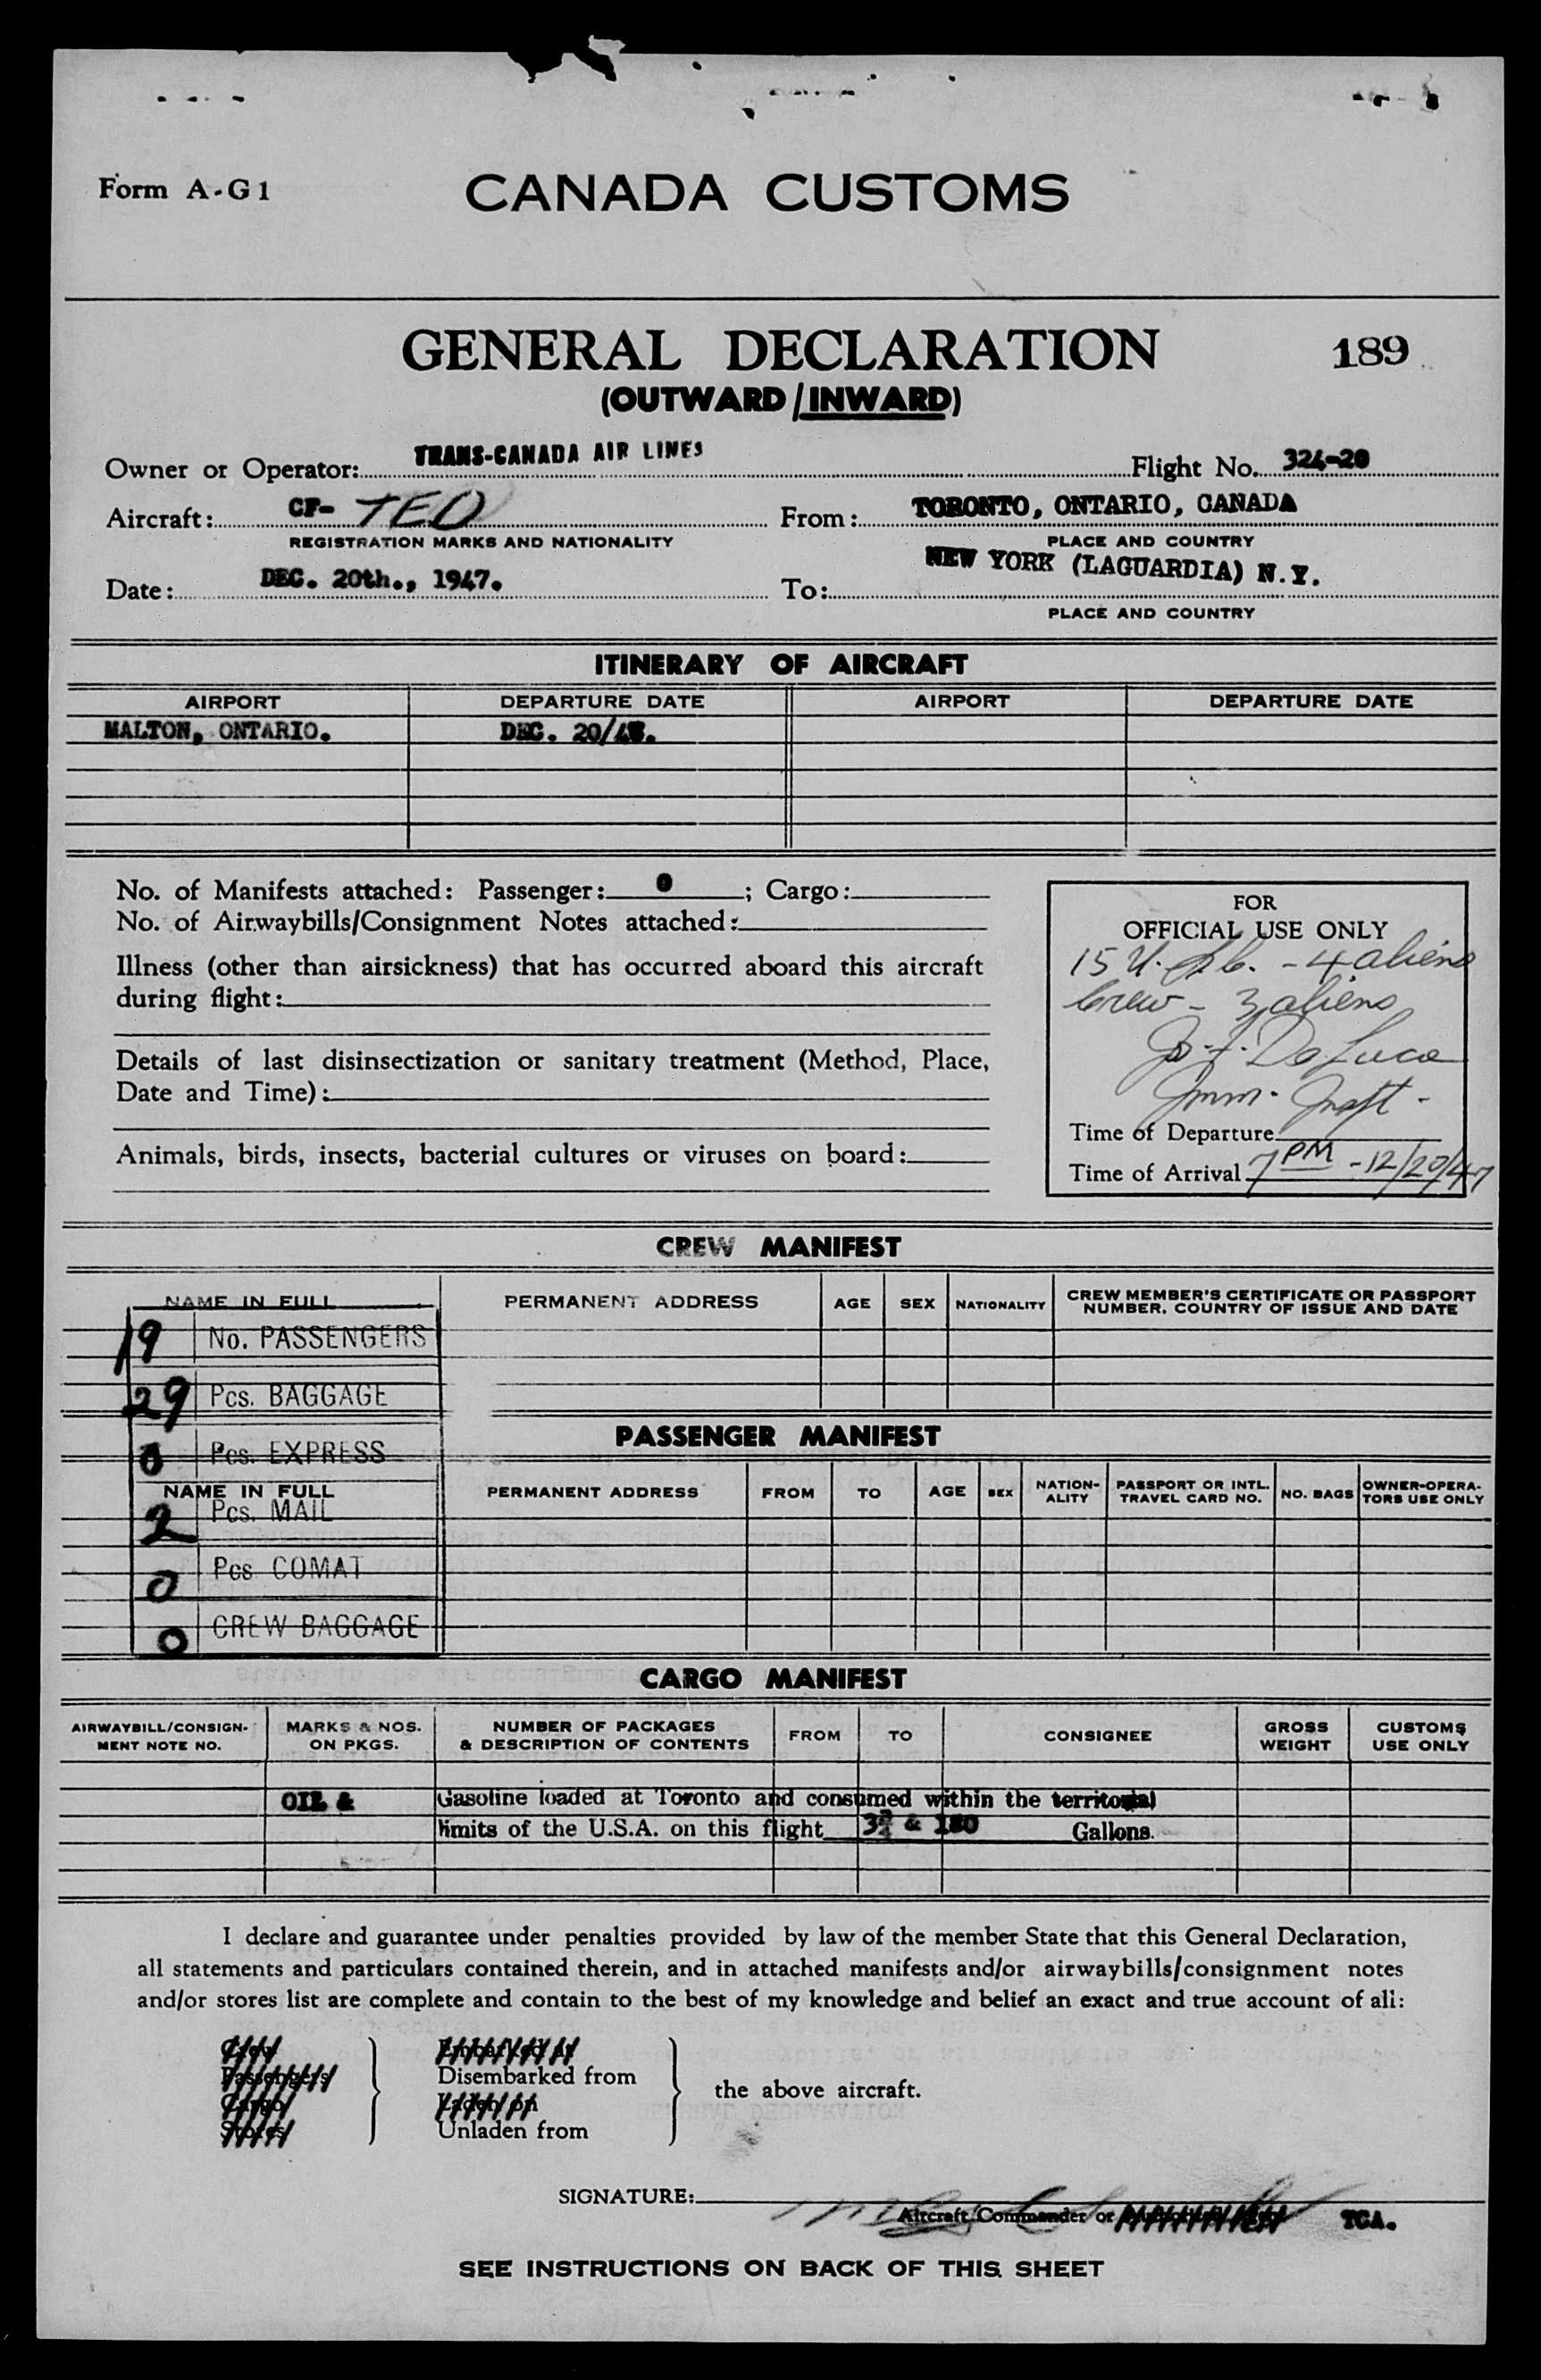 Form A-G1
CANADA CUSTOMS
GENERAL DECLARATION
189
(OUTWARD/INWARD)
Owner or Operator: TRANS-CANADA AIR LINES Flight No. 324-20
Aircraft: CF- TED From: TORONTO, ONTARIO, CANADA
REGISTRATION MARKS AND NATIONALITY PLACE AND COUNTRY
Date: DEC. 20th., 1947. To: NEW YORK (LAGUARDIA) N.Y.
PLACE AND COUNTRY
ITINERARY OF AIRCRAFT
AIRPORT DEPARTURE DATE AIRPORT DEPARTURE DATE
MALTON, ONTARIO. DEC. 20/47.
No. of Manifests attached: Passenger: 0; Cargo:
No. of Airwaybills/Consignment Notes attached:
Illness (other than airsickness) that has occurred aboard this aircraft
during flight:
Details of last disinsectization or sanitary treatment (Method, Place,
Date and Time):
Animals, birds, insects, bacterial cultures or viruses on board:
FOR
OFFICIAL USE ONLY
15 U.S.C. - 4 aliens
Crew - 3 aliens
De Luca
Imm. Inspt.
Time of Departure
Time of Arrival 7 PM - 12/20/47
CREW MANIFEST
NAME IN FULL PERMANENT ADDRESS AGE SEX NATIONALITY CREW MEMBER'S CERTIFICATE OR PASSPORT
NUMBER, COUNTRY OF ISSUE AND DATE
19 No. PASSENGERS
29 Pcs. BAGGAGE
PASSENGER MANIFEST
0 Pcs. EXPRESS
NAME IN FULL PERMANENT ADDRESS FROM TO AGE SEX NATION-
ALITY PASSPORT OR INTL.
TRAVEL CARD NO. NO. BAGS OWNER-OPERA-
TORS USE ONLY
2 Pcs. MAIL
0 Pcs COMAT
0 CREW BAGGAGE
CARGO MANIFEST
AIRWAYBILL/CONSIGN-
MENT NOTE NO. MARKS & NOS.
ON PKGS. NUMBER OF PACKAGES
& DESCRIPTION OF CONTENTS FROM TO CONSIGNEE GROSS
WEIGHT CUSTOMS
USE ONLY
OIL & Gasoline loaded at Toronto and consumed within the territorial
limits of the U.S.A. on this flight & Gallons.
I declare and guarantee under penalties provided by law of the member State that this General Declaration,
all statements and particulars contained therein, and in attached manifests and/or airwaybills/consignment notes
and/or stores list are complete and contain to the best of my knowledge and belief an exact and true account of all:
Crew Embarked at
Passengers Disembarked from
the above aircraft.
Cargo Laden on
Stores Unladen from
SIGNATURE:
Aircraft Commander or TCA.
SEE INSTRUCTIONS ON BACK OF THIS SHEET